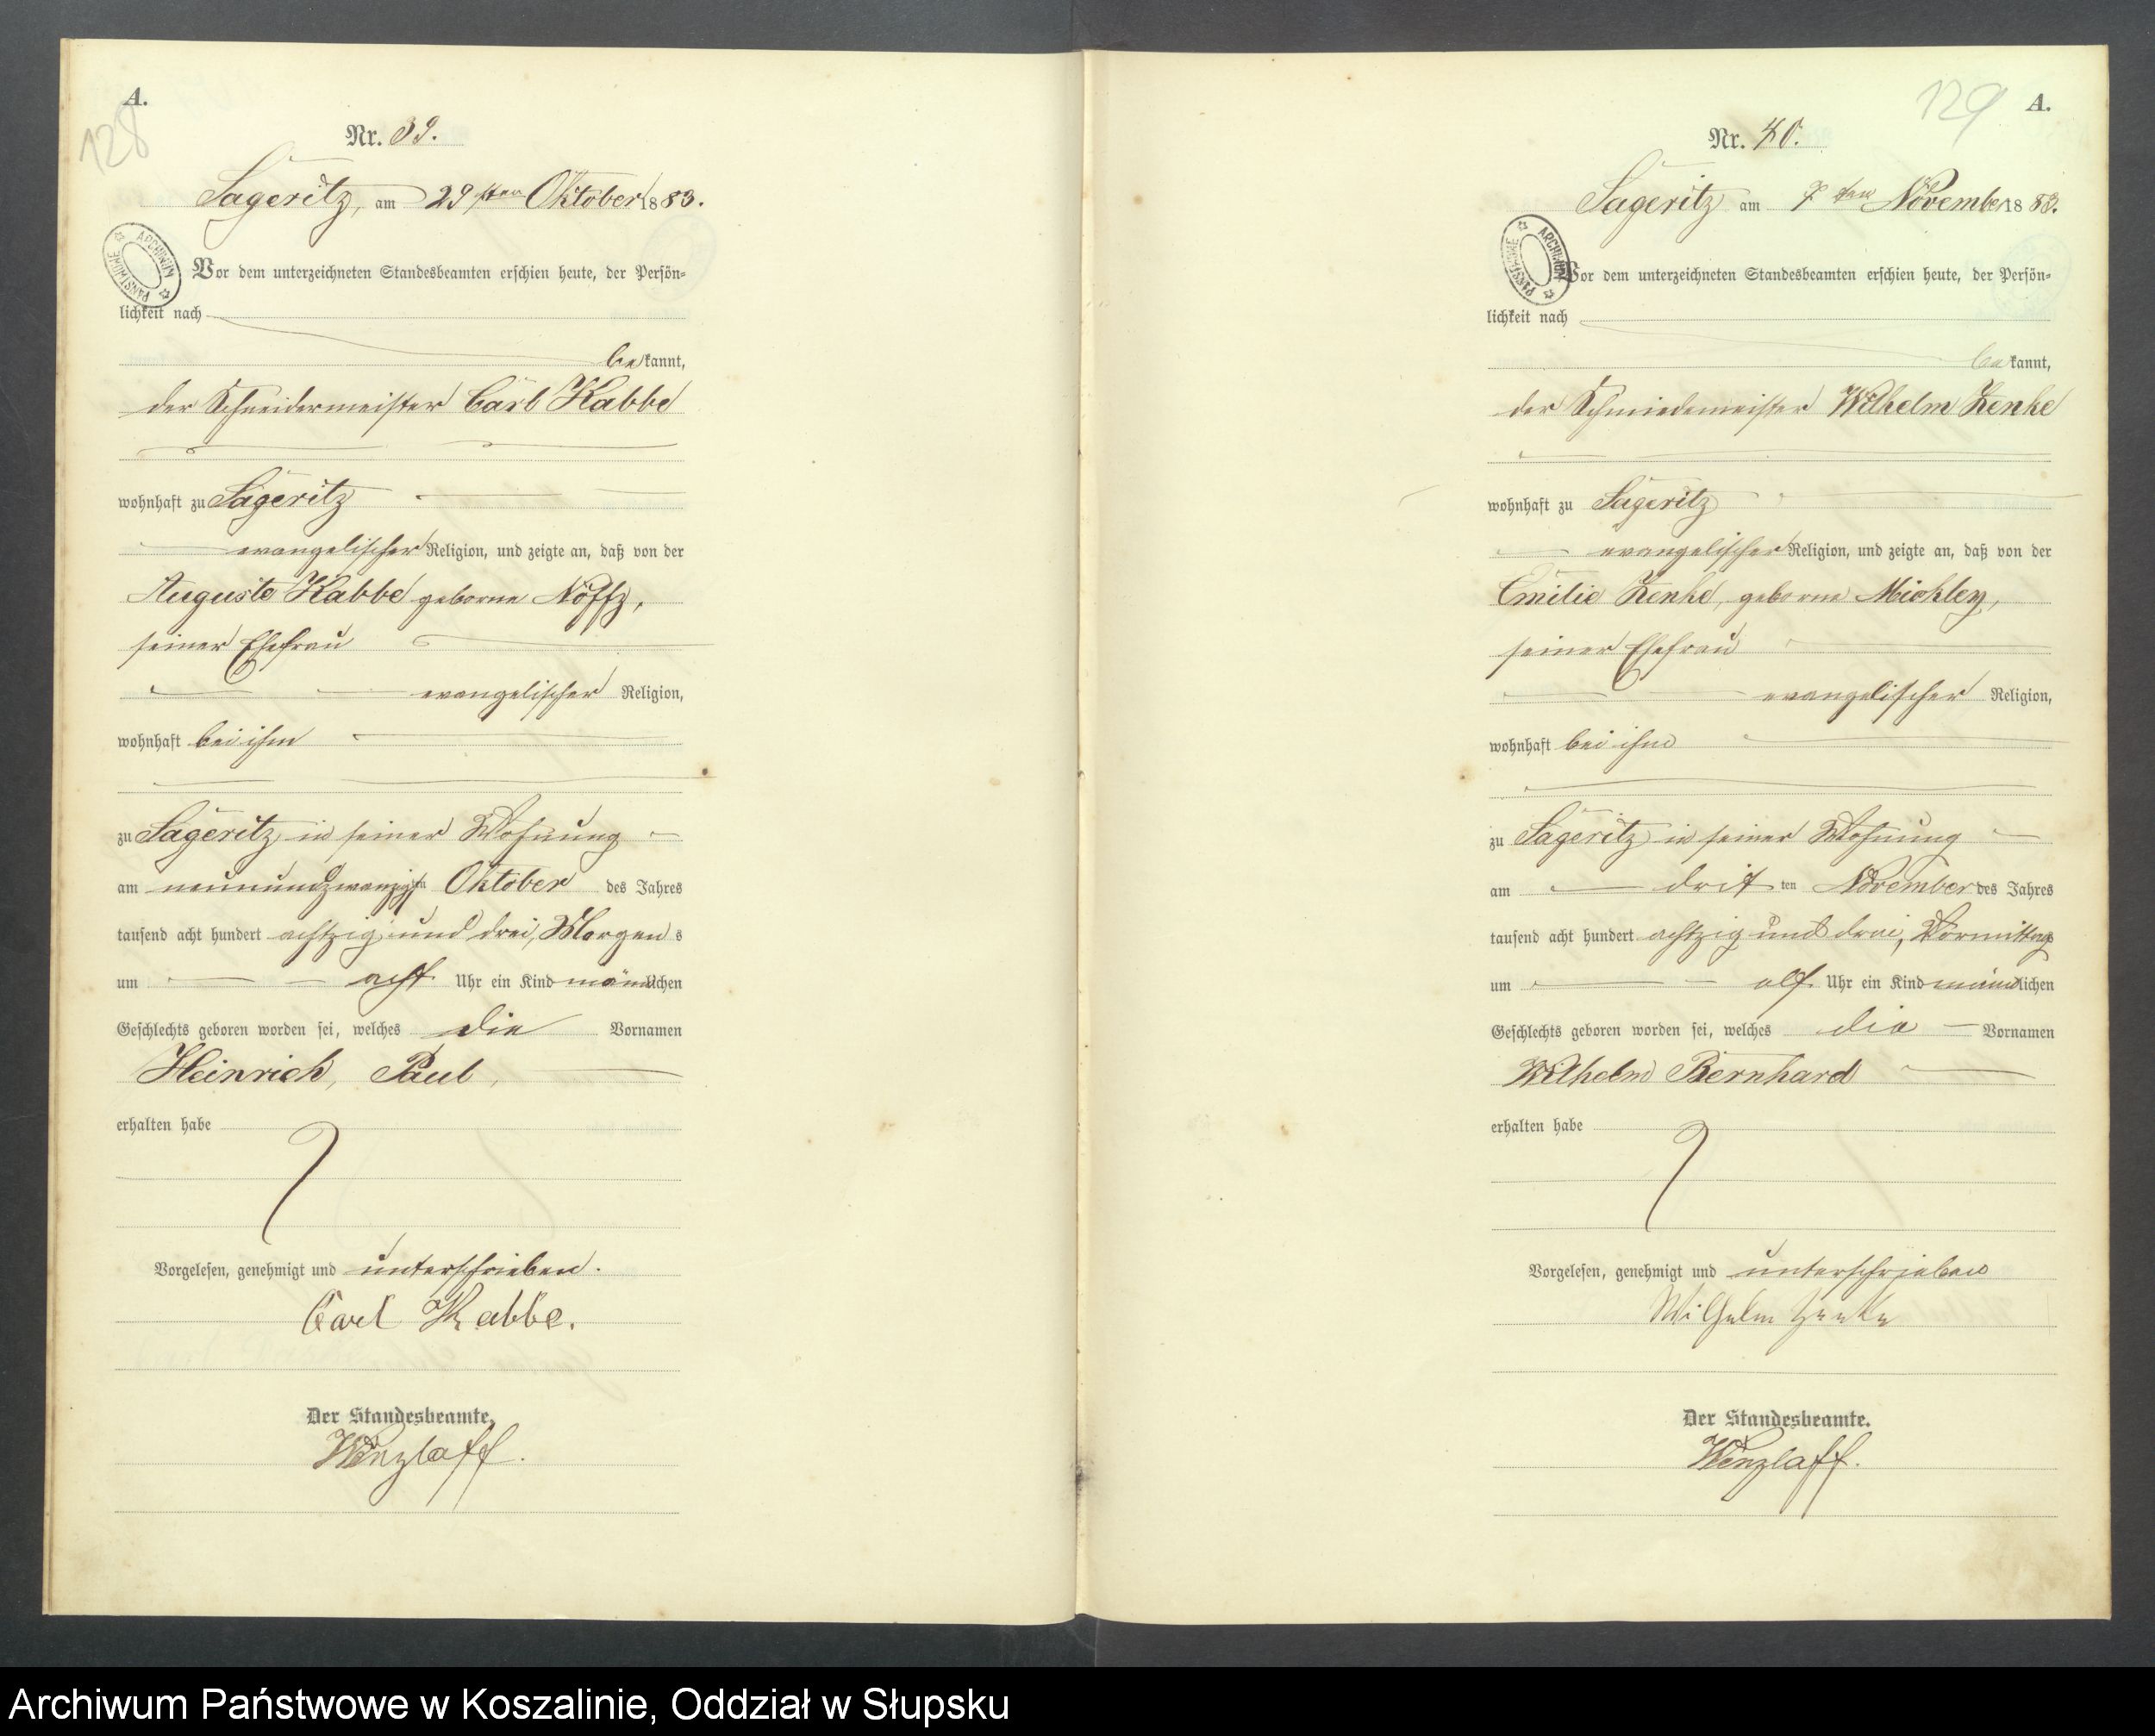 A.
128
Nr. 39.
Sageritz, am 29sten Oktober 1883.
ARCHIWUM PAŃSTWOWE
Vor dem unterzeichneten Standesbeamten erschien heute, der Persön-
lichkeit nach
bekannt,
der Schneidermeister Carl Kabbe
wohnhaft zu Sageritz
evangelischer Religion, und zeigte an, daß von der
Auguste Kabbe geborne Nöffz,
seiner Ehefrau
evangelischer Religion,
wohnhaft bei ihm
zu Sageritz in seiner Wohnung
am neunundzwanzigsten Oktober des Jahres
tausend acht hundert achtzig und drei, Morgens
um acht Uhr ein Kind männlichen
Geschlechts geboren worden sei, welches die Vornamen
Heinrich, Paul,
erhalten habe
Vorgelesen, genehmigt und unterschrieben.
Carl Kabbe.
Der Standesbeamte.
Wenzlaff.
129
A.
Nr. 40.
Sageritz am ten November 1883.
ARCHIWUM PAŃSTWOWE
Vor dem unterzeichneten Standesbeamten erschien heute, der Persön-
lichkeit nach
bekannt,
der Schmiedemeister Wilhelm Henke
wohnhaft zu Sageritz
evangelischer Religion, und zeigte an, daß von der
Emilie Henke, geborne Mickley,
seiner Ehefrau
evangelischer Religion,
wohnhaft bei ihm
zu Sageritz in seiner Wohnung
am dritten November des Jahres
tausend acht hundert achtzig und drei, Vormittags
um elf Uhr ein Kind männlichen
Geschlechts geboren worden sei, welches die Vornamen
Wilhelm Bernhard
erhalten habe
Vorgelesen, genehmigt und unterschrieben
Wilhelm Henke
Der Standesbeamte.
Wenzlaff.
Archiwum Państwowe w Koszalinie, Oddział w Słupsku